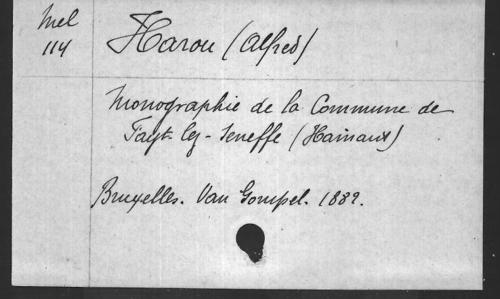 Mel
114
Harou (Alfred)
Monographie de la Commune de
Fayt-lez-Seneffe (Hainaut)
Bruxelles. Van Gompel. 1889.